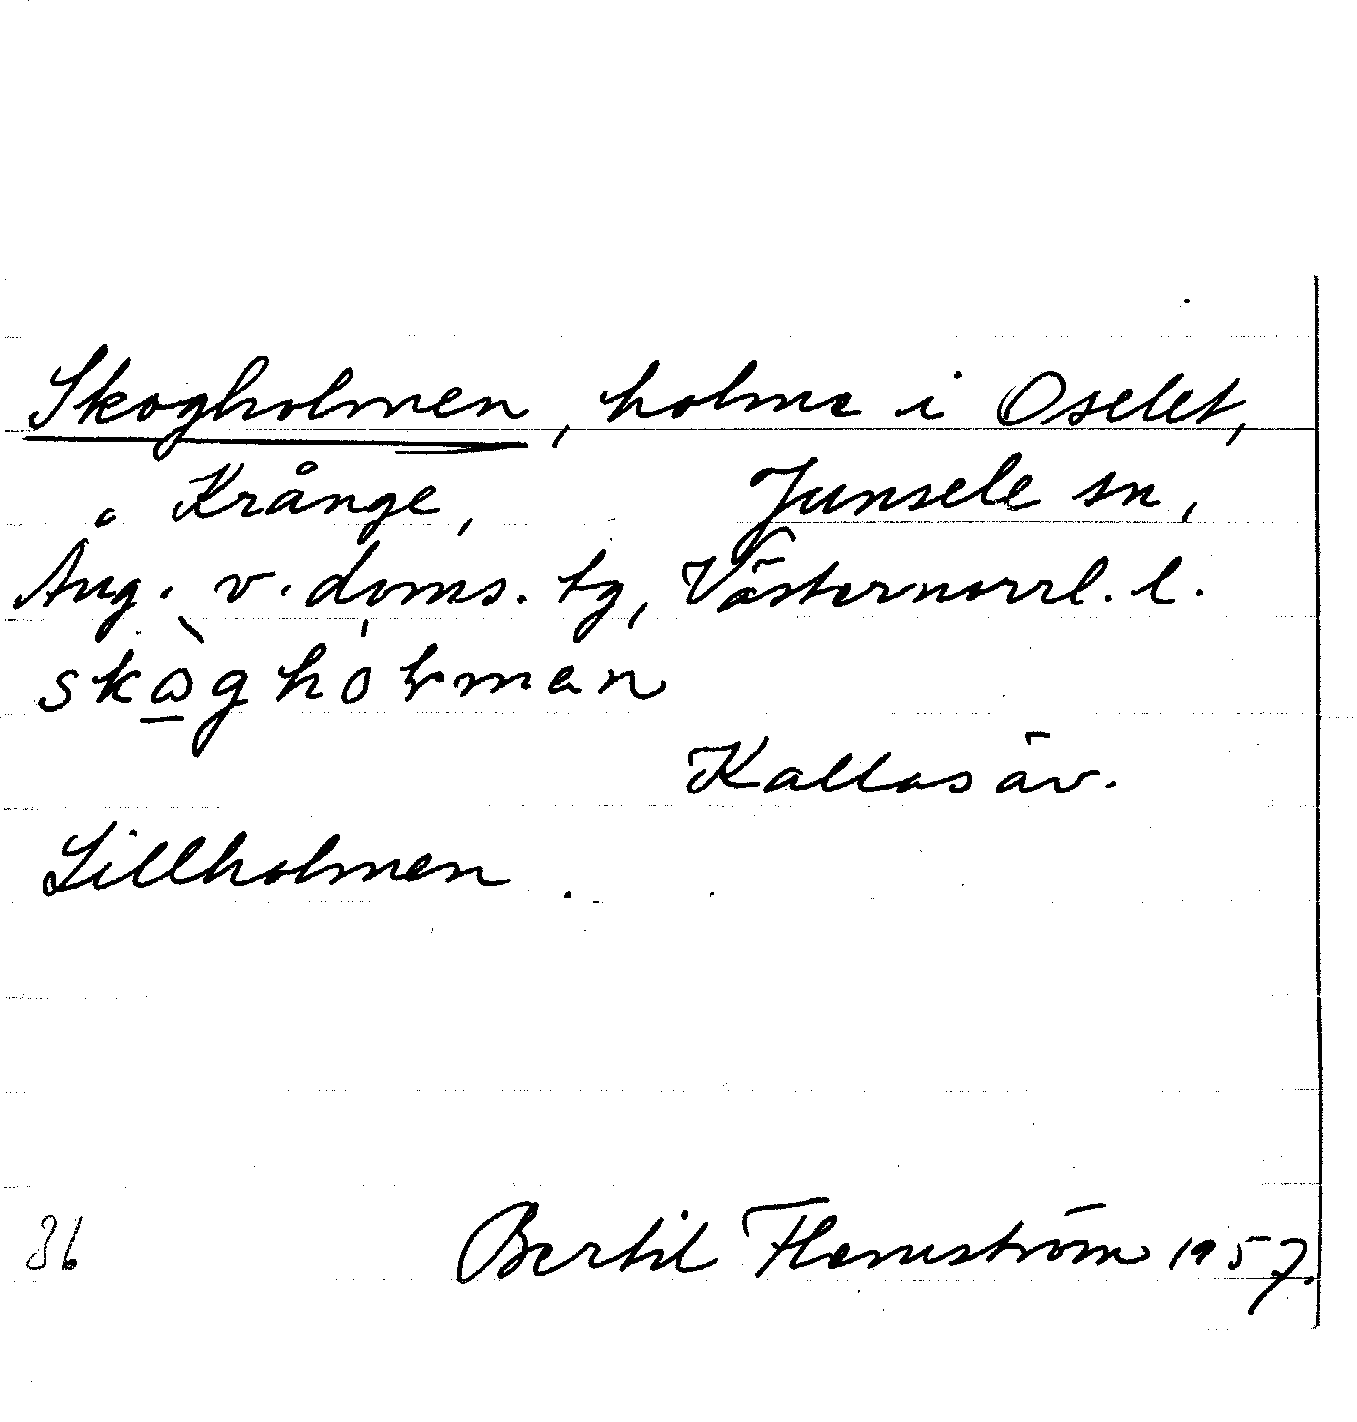 Skogholmen, holme i Oselet,
Krånge, Junsele sn,
Ång. v. doms. tg, Västernorrl. l.
skògholmen
Kallas äv.
Lillholmen.
36
Bertil Flemström 1957.